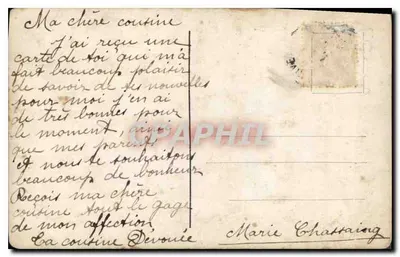 Ma chère cousine
J'ai reçu une
carte de toi qui m'a
fait beaucoup plaisir
de savoir de tes nouvelles
pour moi j'en ai
de très bonnes pour
le moment,
que mes parents
et nous te souhaitons
beaucoup de bonheur
Reçois ma chère
cousine tout le gage
de mon affection
Ta cousine Dévouée
Marie Chassaing
CPARAMA.COM